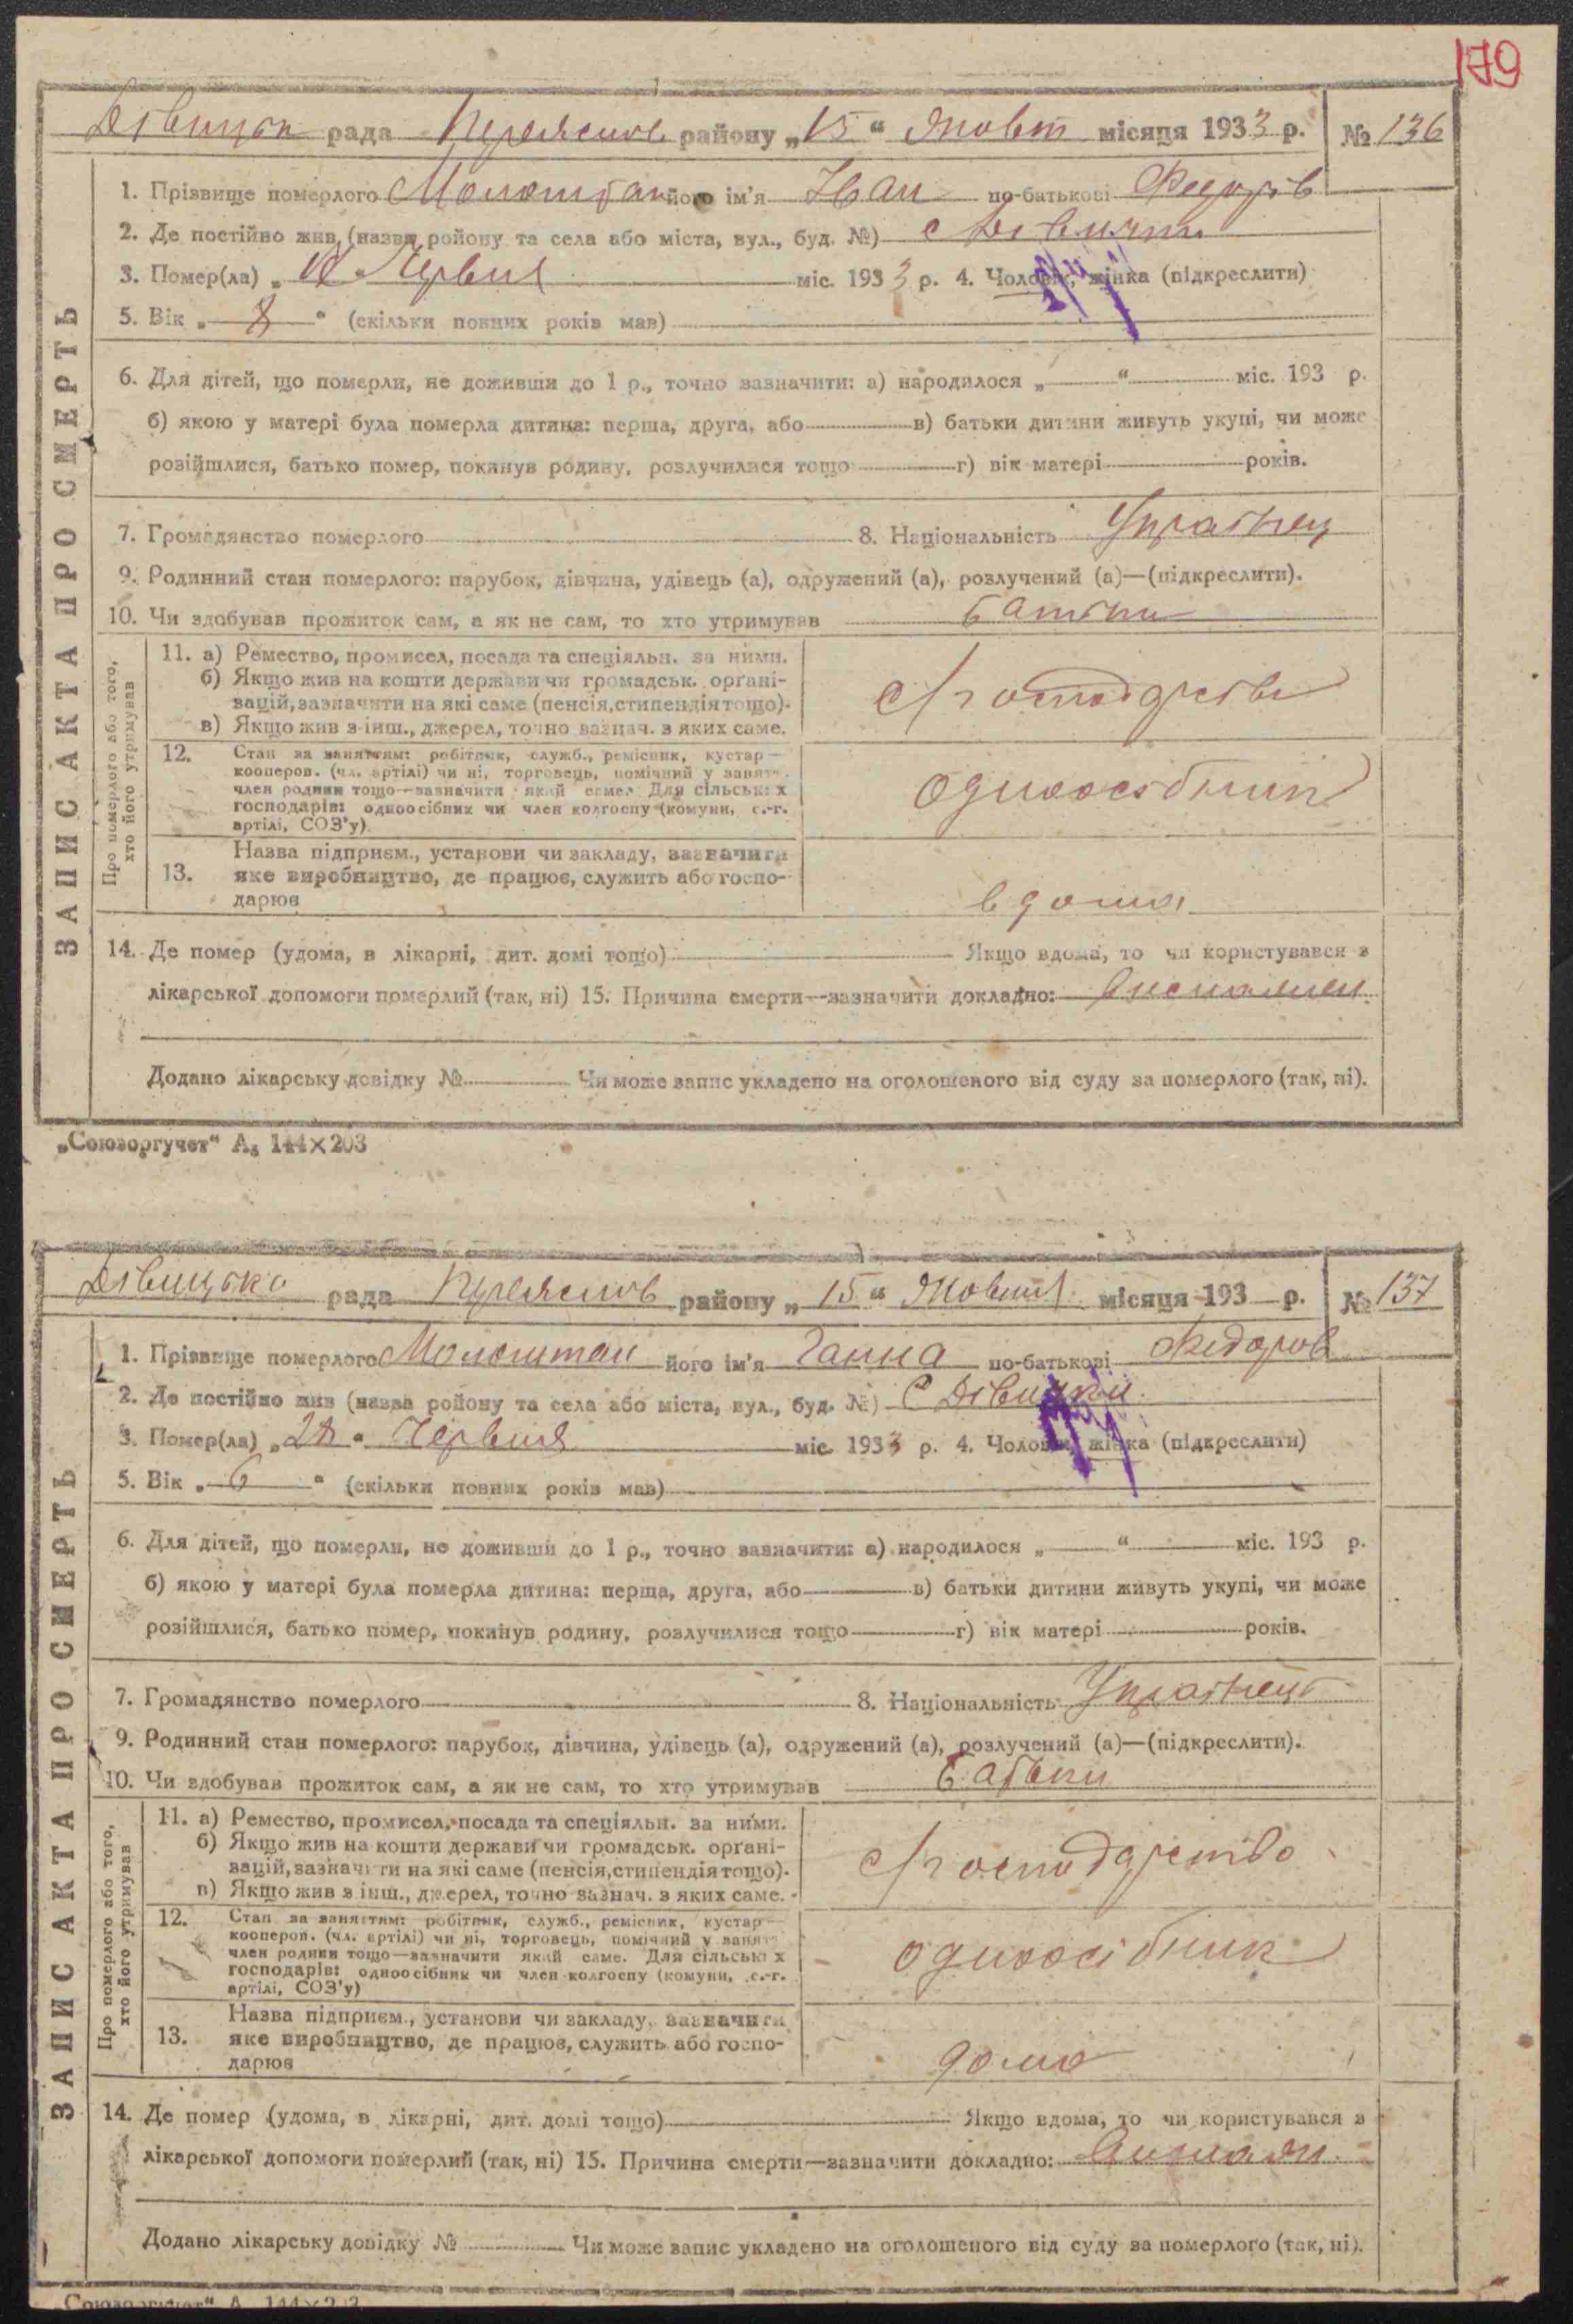 179
Дівицьк рада Переяслов району „15“ Жовт місяця 1933 р. № 136
1. Прізвище померлого його ім'я Іван по-батькові Федорів
2. Де постійно жив (назва ройону та села або міста, вул., буд. №) с Дівички
3. Помер(ла) „ Червня міс. 1933 р. 4. Чоловік, жінка (підкреслити)
5. Вік „ 8 “ (скільки повних років мав)
6. Для дітей, що померли, не доживши до 1 р., точно зазначити: а) народилося „ “ міс. 193 р.
б) якою у матері була померла дитина: перша, друга, або в) батьки дитини живуть укупі, чи може
розійшлися, батько помер, покинув родину, розлучилися тощо г) вік матері років.
7. Громадянство померлого 8. Національність Украінец
9. Родинний стан померлого: парубок, дівчина, удівець (а), одружений (а), розлучений (а)—(підкреслити).
10. Чи здобував прожиток сам, а як не сам, то хто утримував батьки
ЗАПИС АКТА ПРО СМЕРТЬ
Про померлого або того, хто його утримував
11. а) Ремество, промисел, посада та спеціяльн. за ними.
б) Якщо жив на кошти держави чи громадськ. орґані-
зацій, зазначити на які саме (пенсія, стипендія тощо).
в) Якщо жив з інш., джерел, точно зазнач. з яких саме.
12. Стан за заняттям: робітник, служб., ремісник, кустар—
кооперов. (чл. артілі) чи ні, торговець, помічний у занят.
член родини тощо—зазначити який саме. Для сільських
господарів: одноосібник чи член колгоспу (комуни, с.-г.
артілі, СОЗ'у)
одноосібник
13. Назва підприєм., установи чи закладу, зазначити
яке виробництво, де працює, служить або госпо-
дарює
вдома
14. Де помер (удома, в лікарні, дит. домі тощо) Якщо вдома, то чи користувався з
лікарської допомоги померлий (так, ні) 15. Причина смерти—зазначити докладно:
Додано лікарську довідку № Чи може запис укладено на оголошеного від суду за померлого (так, ні).
„Союзоргучет“ А₅ 144×203
Дівицька рада Переяслов району „15“ Жовтня місяця 193 р. № 137
1. Прізвище померлого його ім'я Ганна по-батькові Федоров
2. Де постійно жив (назва ройону та села або міста, вул., буд. №) С Дівички
3. Помер(ла) „28“ Червня міс. 1933 р. 4. Чоловік, жінка (підкреслити)
5. Вік „ 6 “ (скільки повних років мав)
6. Для дітей, що померли, не доживши до 1 р., точно зазначити: а) народилося „ “ міс. 193 р.
б) якою у матері була померла дитина: перша, друга, або в) батьки дитини живуть укупі, чи може
розійшлися, батько помер, покинув родину, розлучилися тощо г) вік матері років.
7. Громадянство померлого 8. Національність Украінець
9. Родинний стан померлого: парубок, дівчина, удівець (а), одружений (а), розлучений (а)—(підкреслити).
10. Чи здобував прожиток сам, а як не сам, то хто утримував Батьки
ЗАПИС АКТА ПРО СМЕРТЬ
Про померлого або того, хто його утримував
11. а) Ремество, промисел, посада та спеціяльн. за ними.
б) Якщо жив на кошти держави чи громадськ. орґані-
зацій, зазначити на які саме (пенсія, стипендія тощо).
в) Якщо жив з інш., джерел, точно зазнач. з яких саме.
с/господарство
12. Стан за заняттям: робітник, служб., ремісник, кустар—
кооперов. (чл. артілі) чи ні, торговець, помічний у занят.
член родини тощо—зазначити який саме. Для сільських
господарів: одноосібник чи член колгоспу (комуни, с.-г.
артілі, СОЗ'у)
одноосібник
13. Назва підприєм., установи чи закладу, зазначити
яке виробництво, де працює, служить або госпо-
дарює
дома
14. Де помер (удома, в лікарні, дит. домі тощо) Якщо вдома, то чи користувався з
лікарської допомоги померлий (так, ні) 15. Причина смерти—зазначити докладно:
Додано лікарську довідку № Чи може запис укладено на оголошеного від суду за померлого (так, ні).
„Союзоргучет“ А 144×203